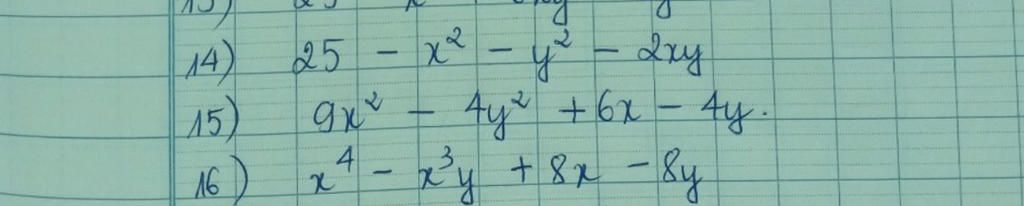 14) 25 - x² - y² - 2xy
15) 9x² - 4y² + 6x - 4y.
16) x⁴ - x³y + 8x - 8y